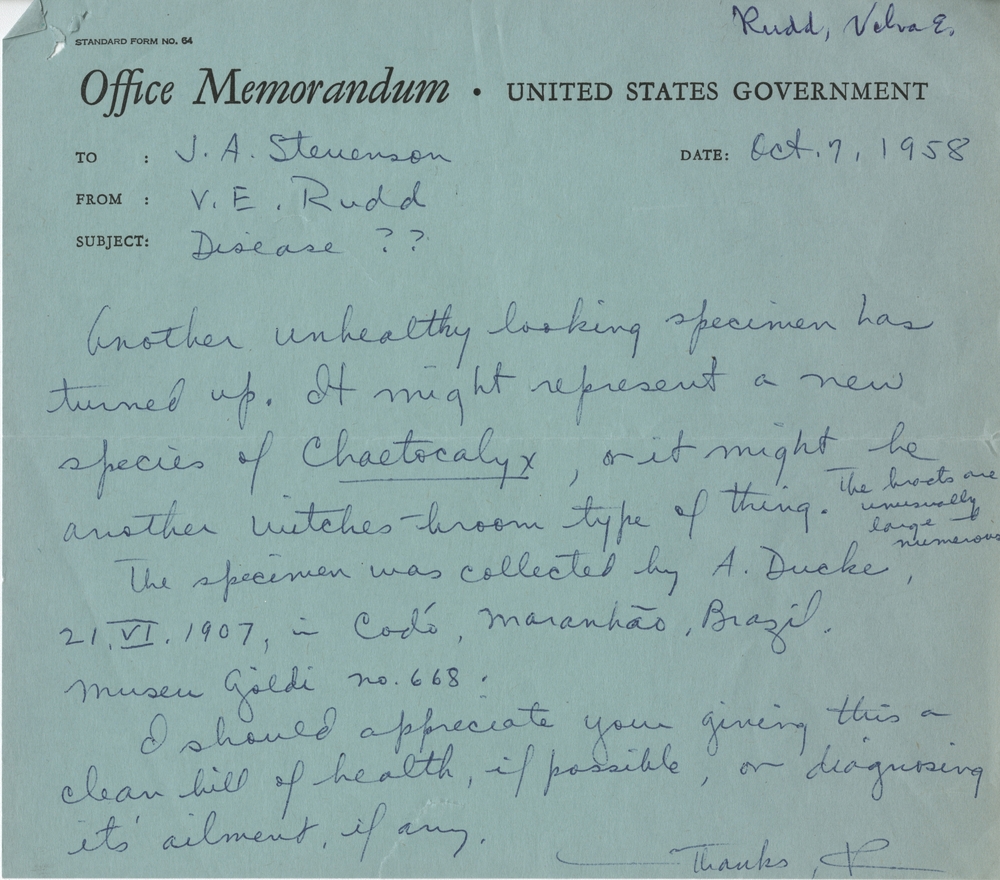 Rudd, Velva E.
STANDARD FORM NO. 64
Office Memorandum • UNITED STATES GOVERNMENT
TO : J. A. Stevenson
DATE: Oct. 7, 1958
FROM : V. E. Rudd
SUBJECT: Disease ??
Another unhealthy looking specimen has
turned up. It might represent a new
species of Chaetocalyx, or it might be
another witches-broom type of thing.
The bracts are
unusually
large +
numerous
The specimen was collected by A. Ducke,
21.VI.1907, in Codó, Maranhão, Brazil.
Museu Göldi no. 668.
I should appreciate your giving this a
clean bill of health, if possible, or diagnosing
it's ailment, if any.
Thanks, R